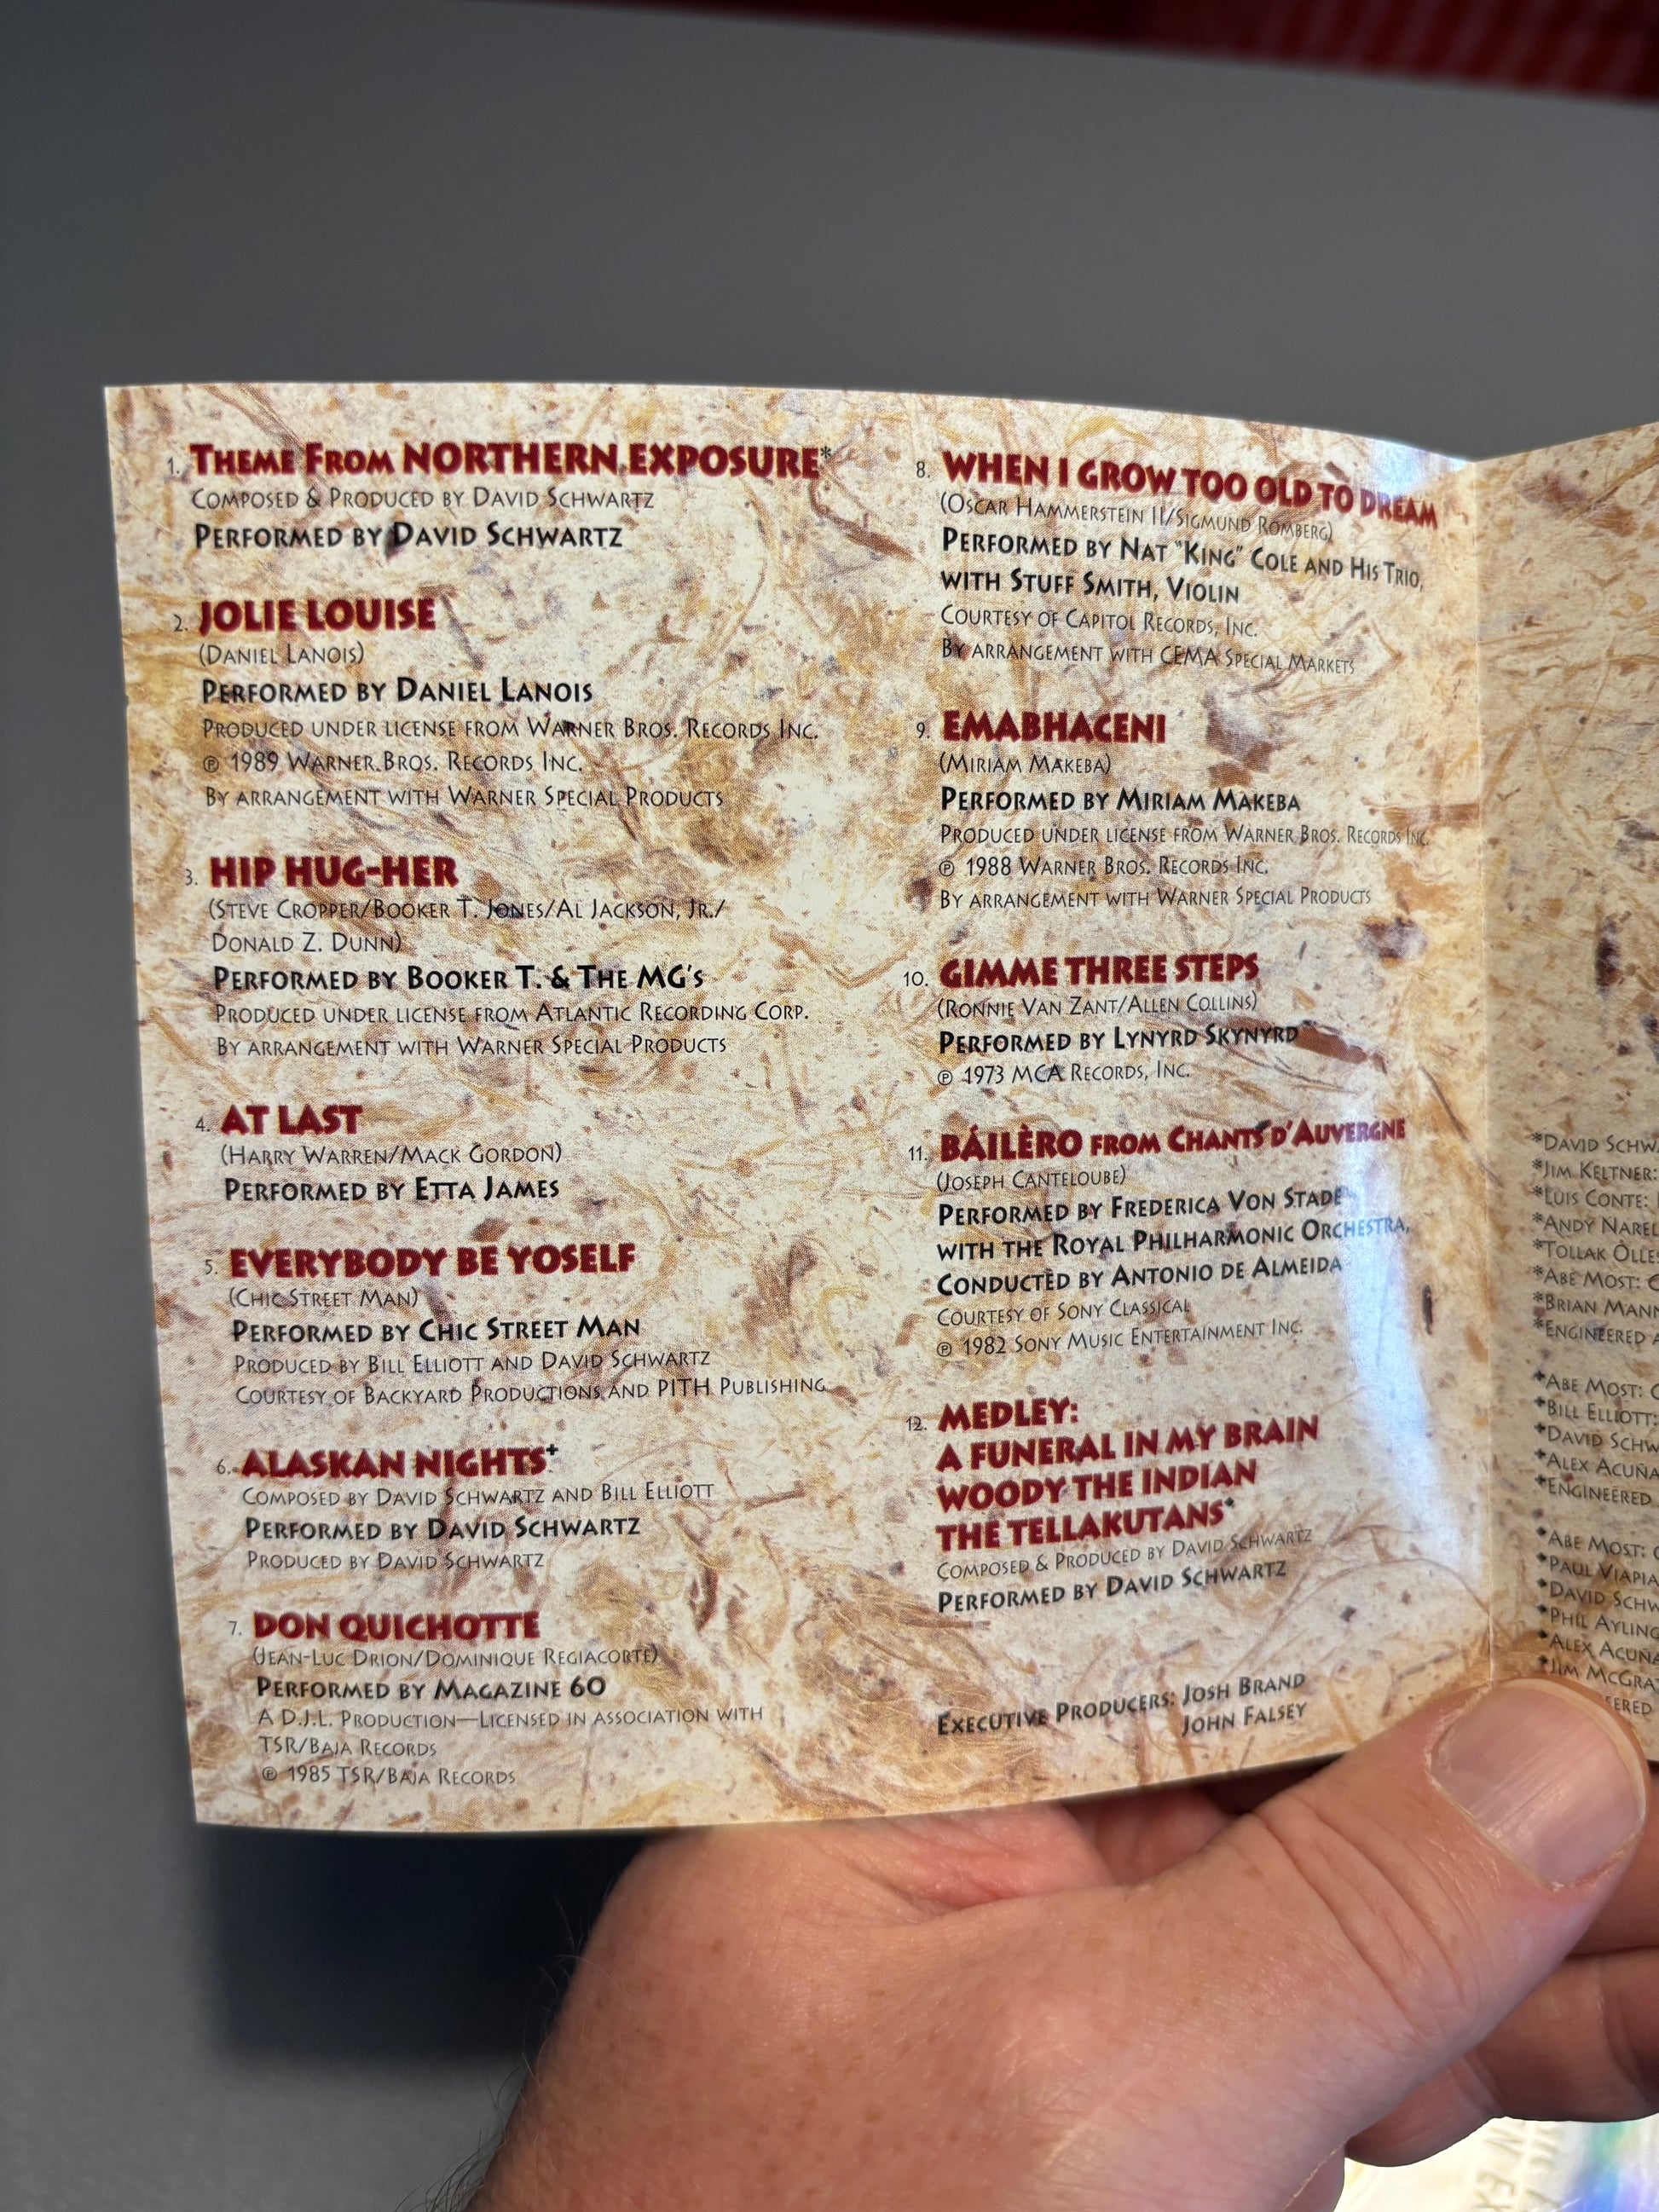 1. Theme From NORTHERN EXPOSURE*
Composed & Produced by David Schwartz
Performed by David Schwartz
2. JOLIE LOUISE
(Daniel Lanois)
Performed by Daniel Lanois
Produced under license from Warner Bros. Records Inc.
℗ 1989 Warner Bros. Records Inc.
By arrangement with Warner Special Products
3. HIP HUG-HER
(Steve Cropper/Booker T. Jones/Al Jackson, Jr./
Donald Z. Dunn)
Performed by Booker T. & The MG's
Produced under license from Atlantic Recording Corp.
By arrangement with Warner Special Products
4. AT LAST
(Harry Warren/Mack Gordon)
Performed by Etta James
5. EVERYBODY BE YOSELF
(Chic Street Man)
Performed by Chic Street Man
Produced by Bill Elliott and David Schwartz
Courtesy of Backyard Productions and PITH Publishing
6. ALASKAN NIGHTS+
Composed by David Schwartz and Bill Elliott
Performed by David Schwartz
Produced by David Schwartz
7. DON QUICHOTTE
(Jean-Luc Drion/Dominique Regiacorte)
Performed by Magazine 60
A D.J.L. Production—Licensed in association with
TSR/Baja Records
℗ 1985 TSR/Baja Records
8. WHEN I GROW TOO OLD TO DREAM
(Oscar Hammerstein II/Sigmund Romberg)
Performed by Nat "King" Cole and His Trio,
with Stuff Smith, Violin
Courtesy of Capitol Records, Inc.
By arrangement with CEMA Special Markets
9. EMABHACENI
(Miriam Makeba)
Performed by Miriam Makeba
Produced under license from Warner Bros. Records Inc.
℗ 1988 Warner Bros. Records Inc.
By arrangement with Warner Special Products
10. GIMME THREE STEPS
(Ronnie Van Zant/Allen Collins)
Performed by Lynyrd Skynyrd
℗ 1973 MCA Records, Inc.
11. BÁILÈRO from Chants d'Auvergne
(Joseph Canteloube)
Performed by Frederica Von Stade
with the Royal Philharmonic Orchestra,
Conducted by Antonio de Almeida
Courtesy of Sony Classical
℗ 1982 Sony Music Entertainment Inc.
12. MEDLEY:
A FUNERAL IN MY BRAIN
WOODY THE INDIAN
THE TELLAKUTANS*
Composed & Produced by David Schwartz
Performed by David Schwartz
Executive Producers: Josh Brand
John Falsey
*David Schw
*Jim Keltner:
*Luis Conte:
*Andy Narel
*Tollak Olles
*Abe Most: C
*Brian Mann
*Engineered
+Abe Most: C
+Bill Elliott:
+David Schw
+Alex Acuña
+Engineered
*Abe Most: C
*Paul Viapia
*David Schw
*Phil Ayling
*Alex Acuña
*Jim McGra
eered